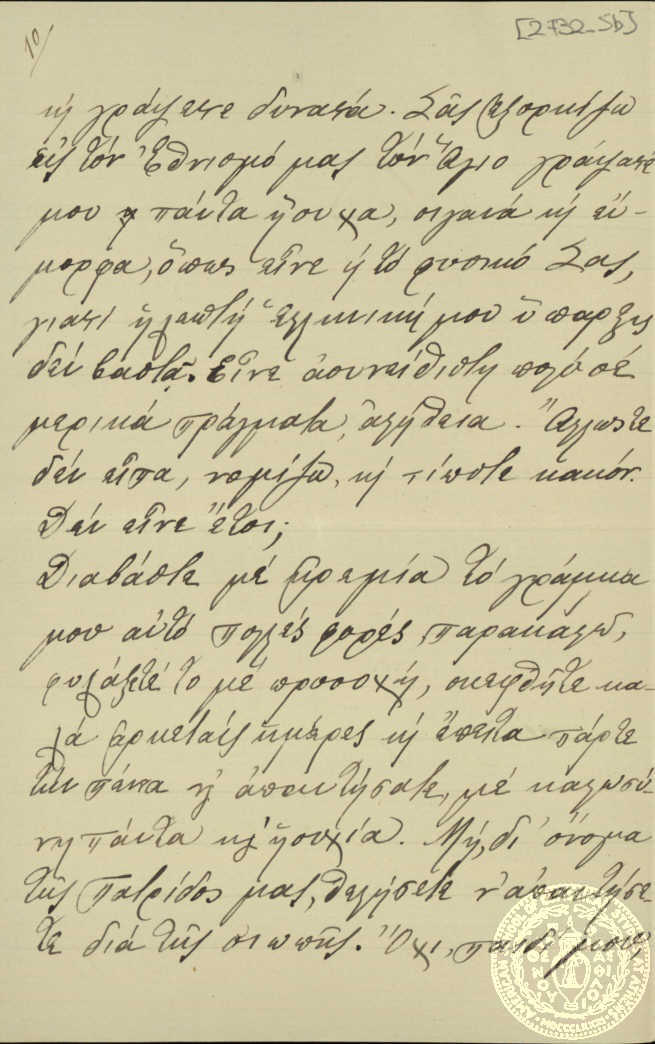 10/
[2732_Sb]
κή γράψετε δυνατά. Σᾶς ἐξορκίζω
εἰς τόν Ἐθνισμό μας τόν Ἅγιο γράψατέ
μου πάντα ἥσυχα, σιγανά κή εὔ-
μορφα, ὅπως εἶνε ἡ τό φυσικό Σας,
γιατι ἡ λεπτή Ἑλληνική μου ὕπαρξις
δέν βαστᾶ. Εἶνε ἀσυνείθιστη πολύ σέ
μερικά πράγματα, ἀλήθεια. Ἄλλωστε
δέν εἶπα, νομίζω, κή τίποτε κακόν.
Δέν εἶνε ἔτσι;
Διαβάστε μέ ἠρεμία τό γράμμα
μου αὐτό πολλές φορές, παρακαλῶ,
φυλάξετέ το μέ προσοχή, σκεφθῆτε κα-
λά ἀρκεταίς ἡμέρες κή ἔπειτα πάρτε
τήν πέννα κή ἀπαντήσατε, μέ καλωσύ-
νη πάντα κή ἡσυχία. Μή, δι' ὄνομα
τῆς Πατρίδος μας, θελήσετε ν' ἀπαντήσε
τε διά τῆς σιωπῆς. Ὄχι, παιδί μου,